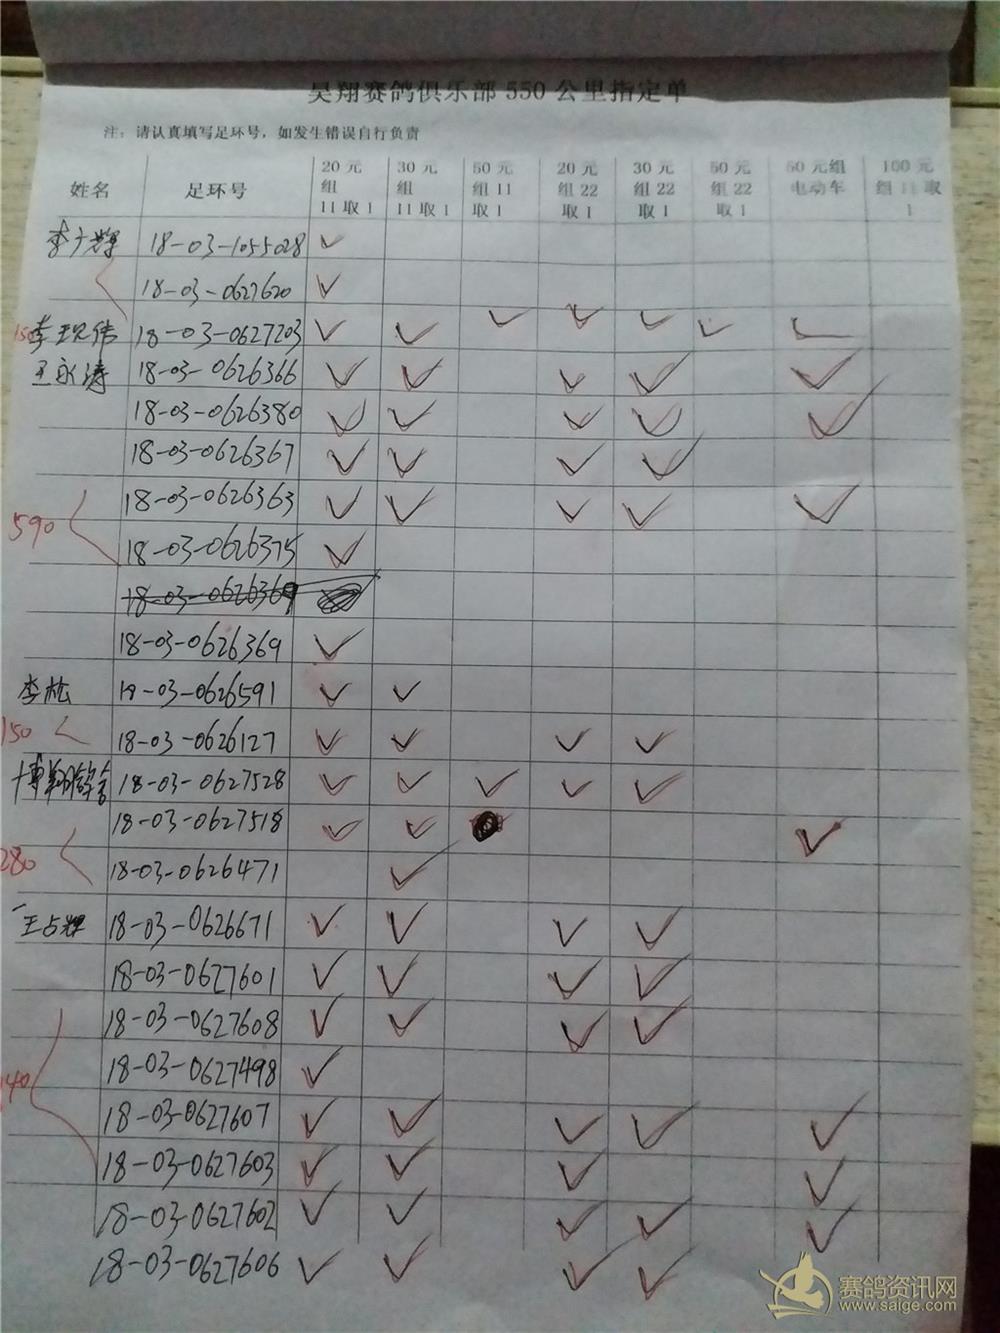 昊翔赛鸽俱乐部 550 公里指定单
注：请认真填写足环号，如发生错误自行负责
姓名 足环号 20 元组 11 取 1 30 元组 11 取 1 50 元组 11 取 1 20 元组 22 取 1 30 元组 22 取 1 50 元组 22 取 1 50 元组电动车 100 元组 11 取 1
李广辉 18-03-1055028 ✓
18-03-0627620 ✓
150 李现伟 18-03-0627203 ✓ ✓ ✓ ✓ ✓ ✓ ✓
王永涛 18-03-0626366 ✓ ✓ ✓ ✓ ✓
18-03-0626380 ✓ ✓ ✓ ✓ ✓
18-03-0626367 ✓ ✓ ✓ ✓
18-03-0626363 ✓ ✓ ✓ ✓ ✓
590 18-03-0626375 ✓
18-03-0626369
18-03-0626369 ✓
李松 18-03-0626591 ✓ ✓
150 18-03-0626127 ✓ ✓ ✓ ✓
博翔鸽舍 18-03-0627528 ✓ ✓ ✓ ✓ ✓
18-03-0627518 ✓ ✓ ✓
280 18-03-0626471 ✓
王占辉 18-03-0626671 ✓ ✓ ✓ ✓
18-03-0627601 ✓ ✓ ✓ ✓
18-03-0627608 ✓ ✓ ✓ ✓
18-03-0627498 ✓
18-03-0627607 ✓ ✓ ✓ ✓ ✓
18-03-0627603 ✓ ✓ ✓ ✓
18-03-0627602 ✓ ✓ ✓ ✓ ✓
18-03-0627606 ✓ ✓ ✓ ✓
赛鸽资讯网
www.saige.com